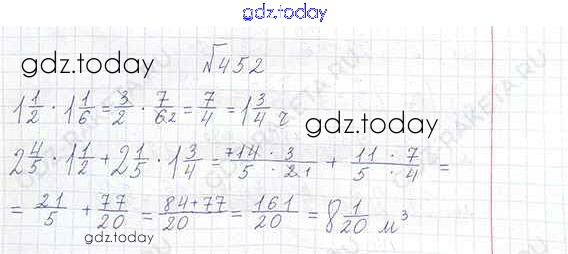 gdz.today
gdz.today №452
1 1/2 · 1 1/6 = 3/2 · 7/62 = 7/4 = 1 3/4 ч
gdz.today
2 4/5 · 1 1/2 + 2 1/5 · 1 3/4 = 714 · 3/5 · 21 + 11 · 7/5 · 4 =
= 21/5 + 77/20 = 84+77/20 = 161/20 = 8 1/20 м³
gdz.today